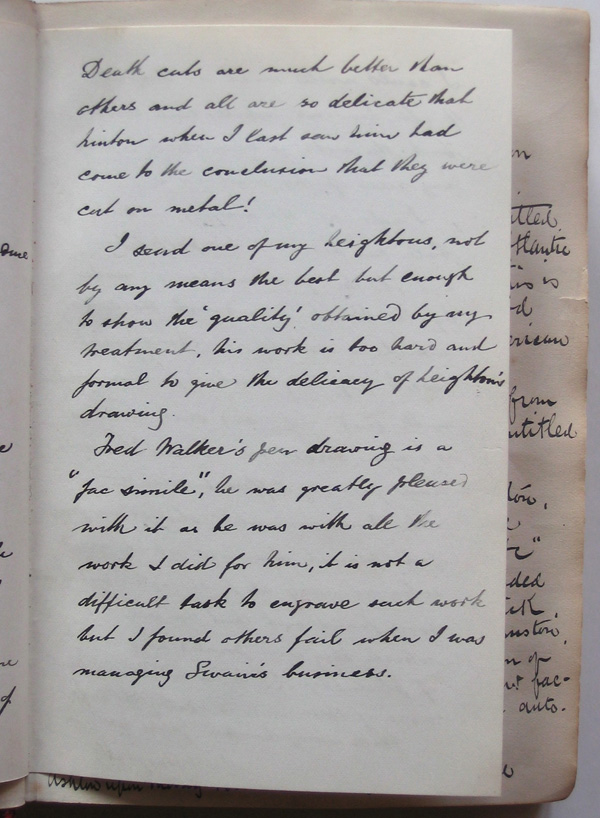 Death cuts are much better than
others and all are so delicate that
Linton when I last saw him had
come to the conclusion that they were
cut on metal!
I send one of my Leightons, not
by any means the best but enough
to show the 'quality' obtained by my
treatment, his work is too hard and
formal to give the delicacy of Leighton's
drawing.
Fred Walker's pen drawing is a
"fac simile", he was greatly pleased
with it as he was with all the
work I did for him, it is not a
difficult task to engrave such work
but I found others fail when I was
managing Swain's business.